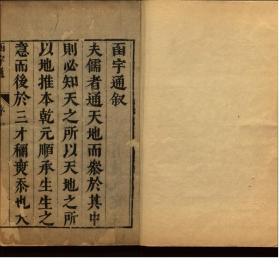 函宇通叙
夫儒者通天地而參於其中
則必知天之所以天地之所
以地推本乾元順承生生之
意而後於三才稱焭泰也人
函宇通